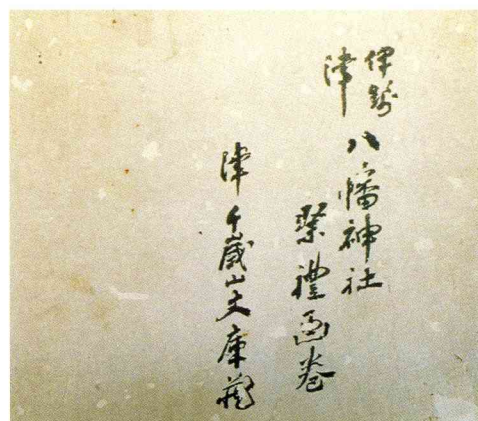 伊勢
津 八幡神社
祭禮画巻
津 千歳山文庫蔵